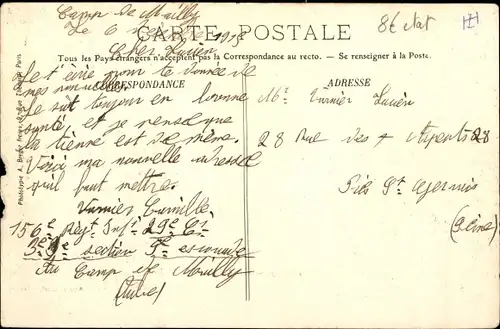 Camp de Mailly
Le 6
CARTE POSTALE
86 stat
Cher Lucien
Tous les Pays étrangers n'acceptent pas la Correspondance au recto. — Se renseigner à la Poste.
CORRESPONDANCE
ADRESSE
Je t'écris pour te donnée de
mes nouvelles
Je suit toujours en bonne
santé, et je pense que
la tienne est de même.
Voici ma nouvelle adresse
qu'il faut mettre.
Vurnier Camille
156e Regt Infie 29e Cie
section 5e escouade
Au Camp de Mailly
(Aube)
Mr Vurnier Lucien
28 Rue des 7 Arpents 28
Prés St Gervais
(Seine)